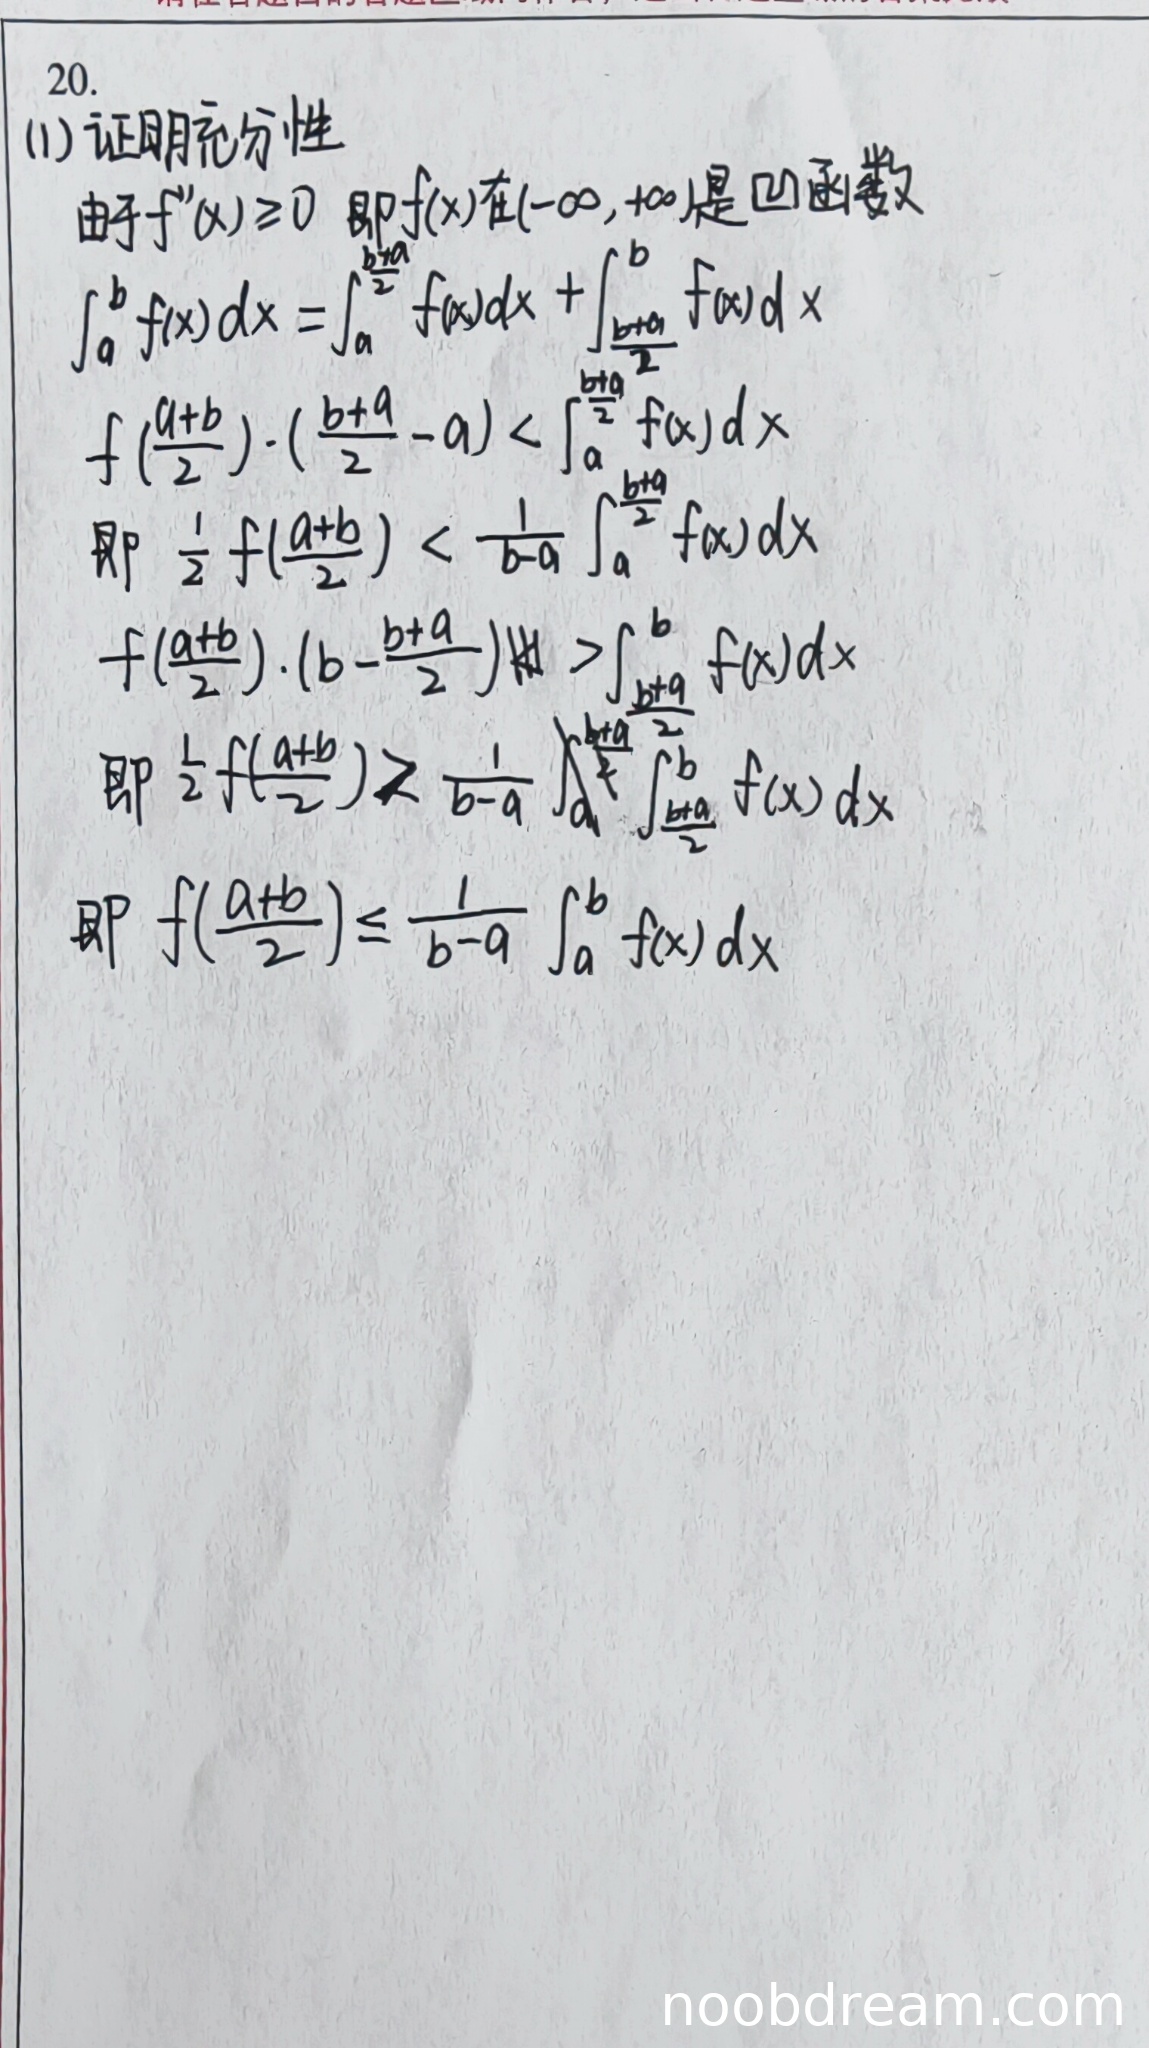 20.
(1) 证明充分性
由于 f''(x) ≥ 0 即 f(x) 在(-∞, +∞)是凹函数
∫_a^b f(x) dx = ∫_a^{\frac{b+a}{2}} f(x) dx + ∫_{\frac{b+a}{2}}^b f(x) dx
f(\frac{a+b}{2}) · (\frac{b+a}{2} - a) < ∫_a^{\frac{b+a}{2}} f(x) dx
即 \frac{1}{2} f(\frac{a+b}{2}) < \frac{1}{b-a} ∫_a^{\frac{b+a}{2}} f(x) dx
f(\frac{a+b}{2}) · (b - \frac{b+a}{2}) > ∫_{\frac{b+a}{2}}^b f(x) dx
即 \frac{1}{2} f(\frac{a+b}{2}) > \frac{1}{b-a} ∫_{\frac{b+a}{2}}^b f(x) dx
即 f(\frac{a+b}{2}) ≤ \frac{1}{b-a} ∫_a^b f(x) dx
noobdream.com